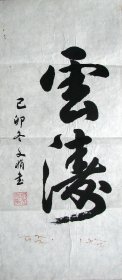 雲濤
己卯冬文娟書